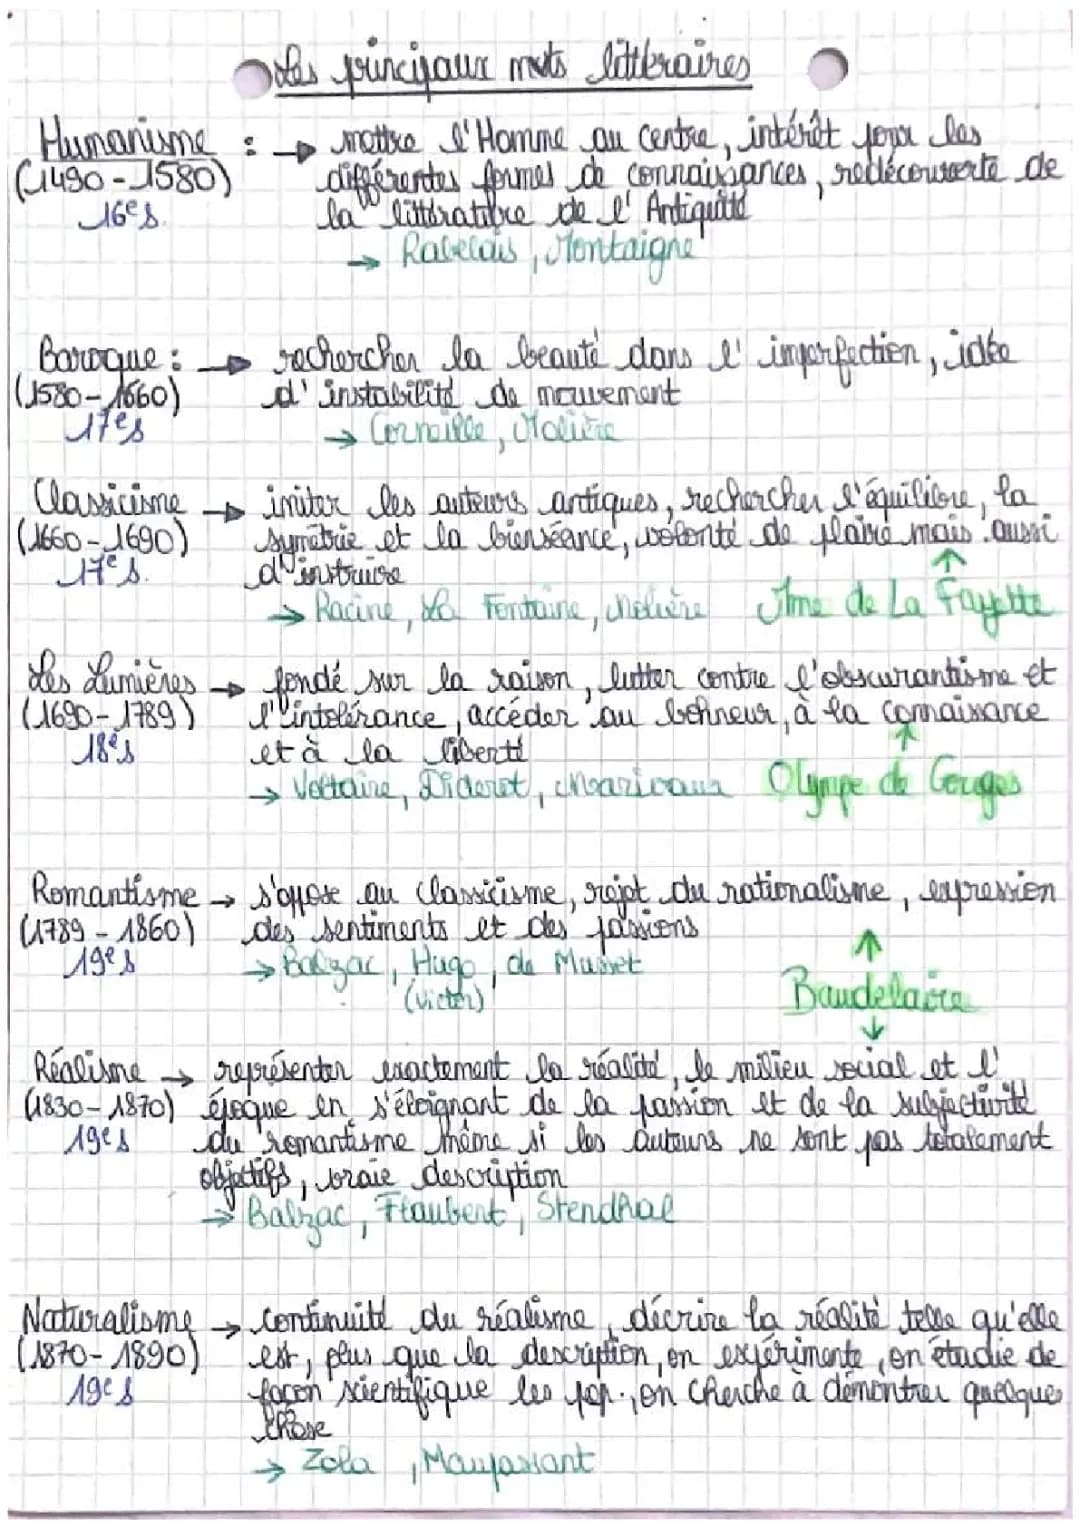 Les principaux mvts littéraires
Humanisme : → mettre l'Homme au centre, intérêt pour les
(1490-1580) différentes formes de connaissances, redécouverte de
16e s. la littérature de l'Antiquité
→ Rabelais, Montaigne
Baroque : → rechercher la beauté dans l'imperfection, idée
(1580-1660) d'instabilité de mouvement
17e s → Corneille, Molière
Classicisme → imiter les auteurs antiques, rechercher l'équilibre, la
(1660-1690) symétrie et la bienséance, volonté de plaire mais aussi
17e s. d'instruire ↑
→ Racine, La Fontaine, Molière Mme de La Fayette
Les Lumières → fondé sur la raison, lutter contre l'obscurantisme et
(1690-1789) l'intolérance, accéder au bonheur, à la connaissance
18e s et à la liberté ↑
→ Voltaire, Diderot, Marivaux Olympe de Gouges
Romantisme → s'oppose au classicisme, rejet du rationalisme, expression
(1789-1860) des sentiments et des passions ↑
19e s → Balzac, Hugo, de Musset
(Victor) Baudelaire
↓
Réalisme → représenter exactement la réalité, le milieu social et l'
(1830-1870) époque en s'éloignant de la passion et de la subjectivité
19e s du romantisme même si les auteurs ne sont pas totalement
objectifs, vraie description
→ Balzac, Flaubert, Stendhal
Naturalisme → continuité du réalisme, décrire la réalité telle qu'elle
(1870-1890) est, plus que la description, on expérimente, on étudie de
19e s façon scientifique les pop., on cherche à démontrer quelque
chose
→ Zola, Maupassant